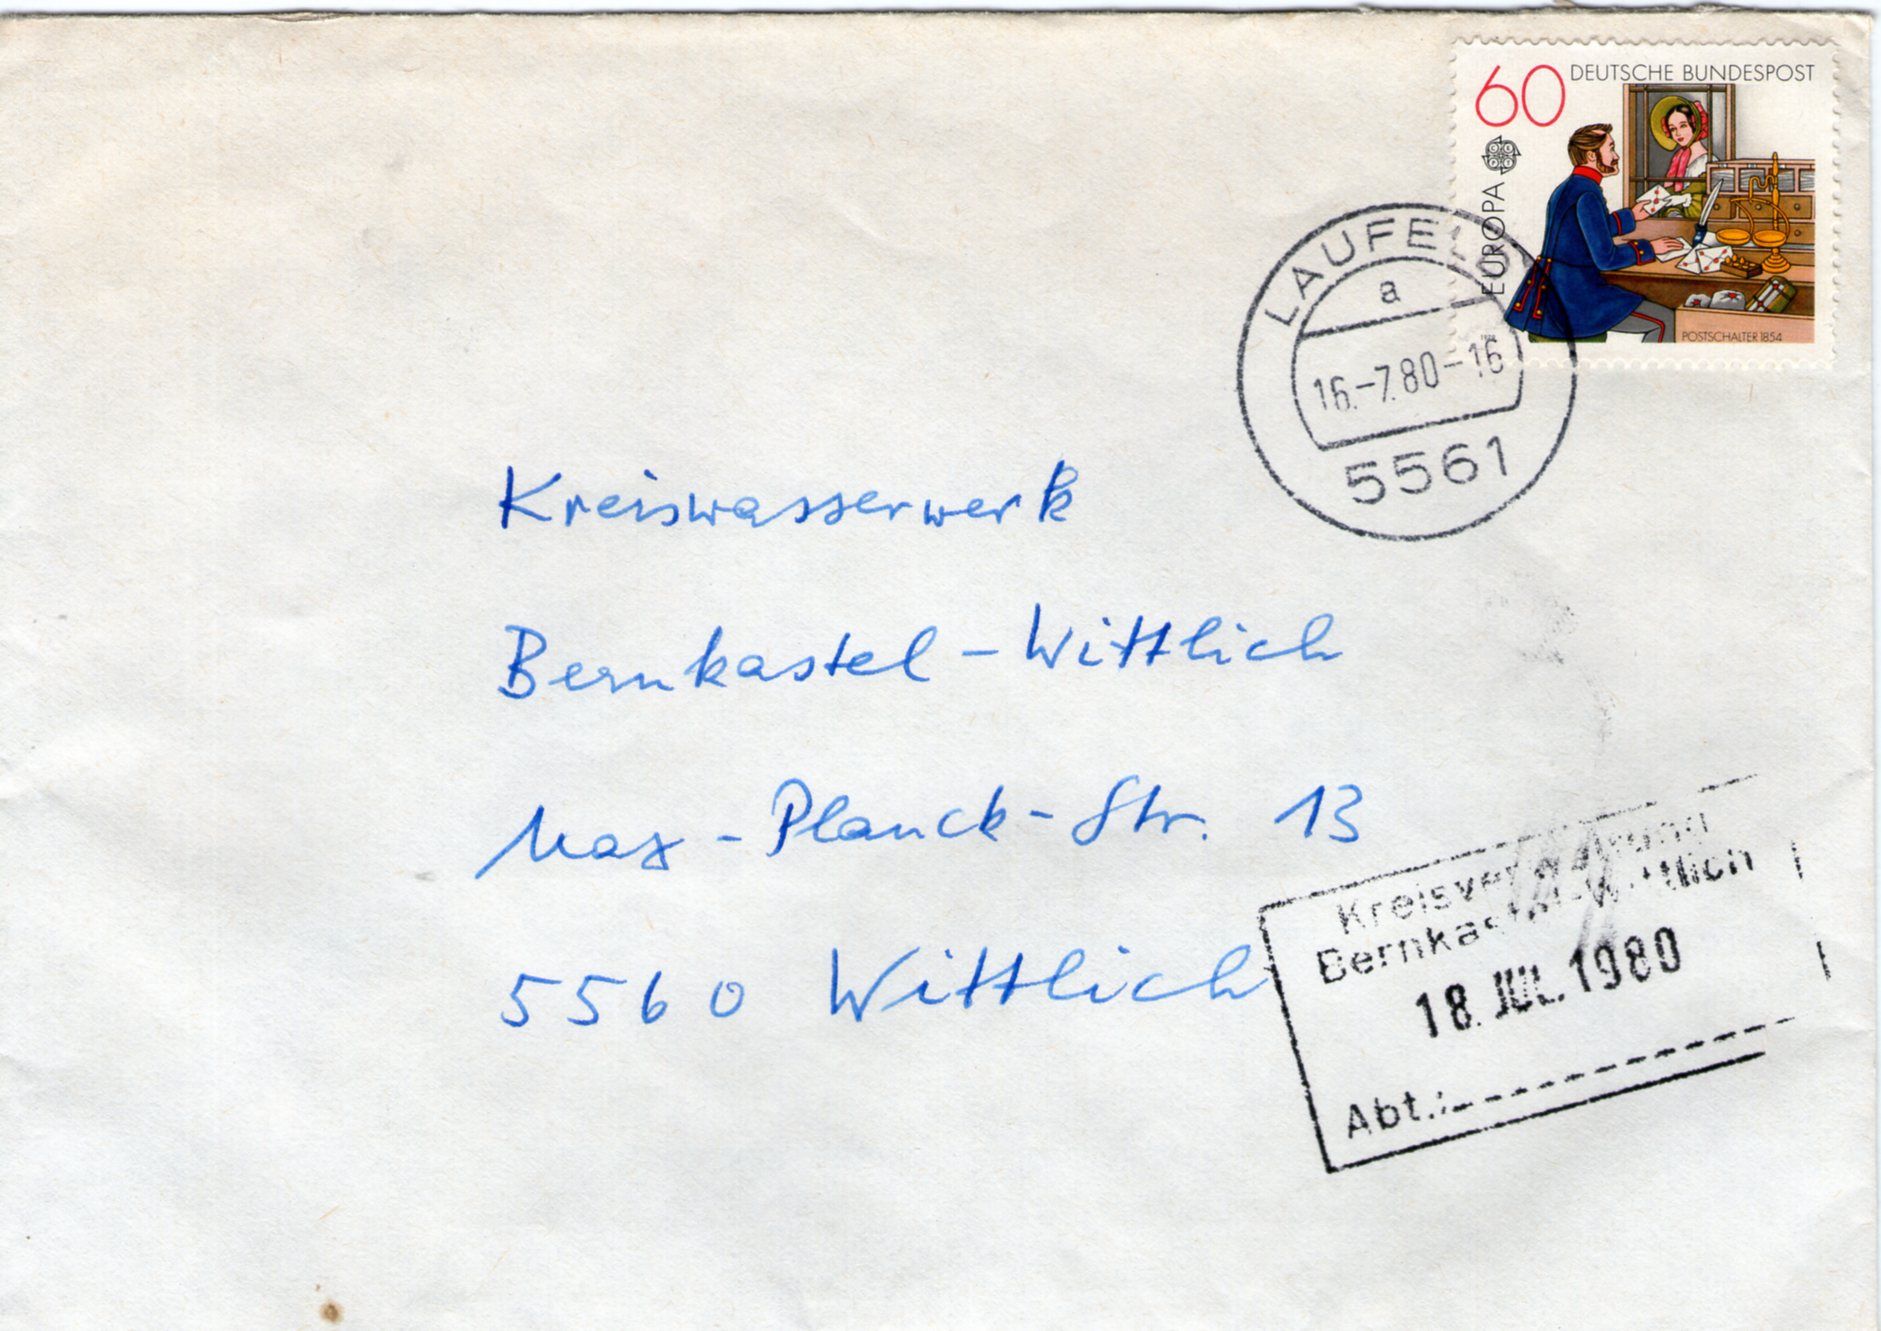 60 DEUTSCHE BUNDESPOST
EUROPA
CEPT
POSTSCHALTER 1854
LAUFELD
a
16.-7.80-16
5561
Kreiswasserwerk
Bernkastel-Wittlich
Max-Planck-Str. 13
5560 Wittlich
Kreisverwaltung
Bernkastel-Wittlich
18. JUL. 1980
Abt.: